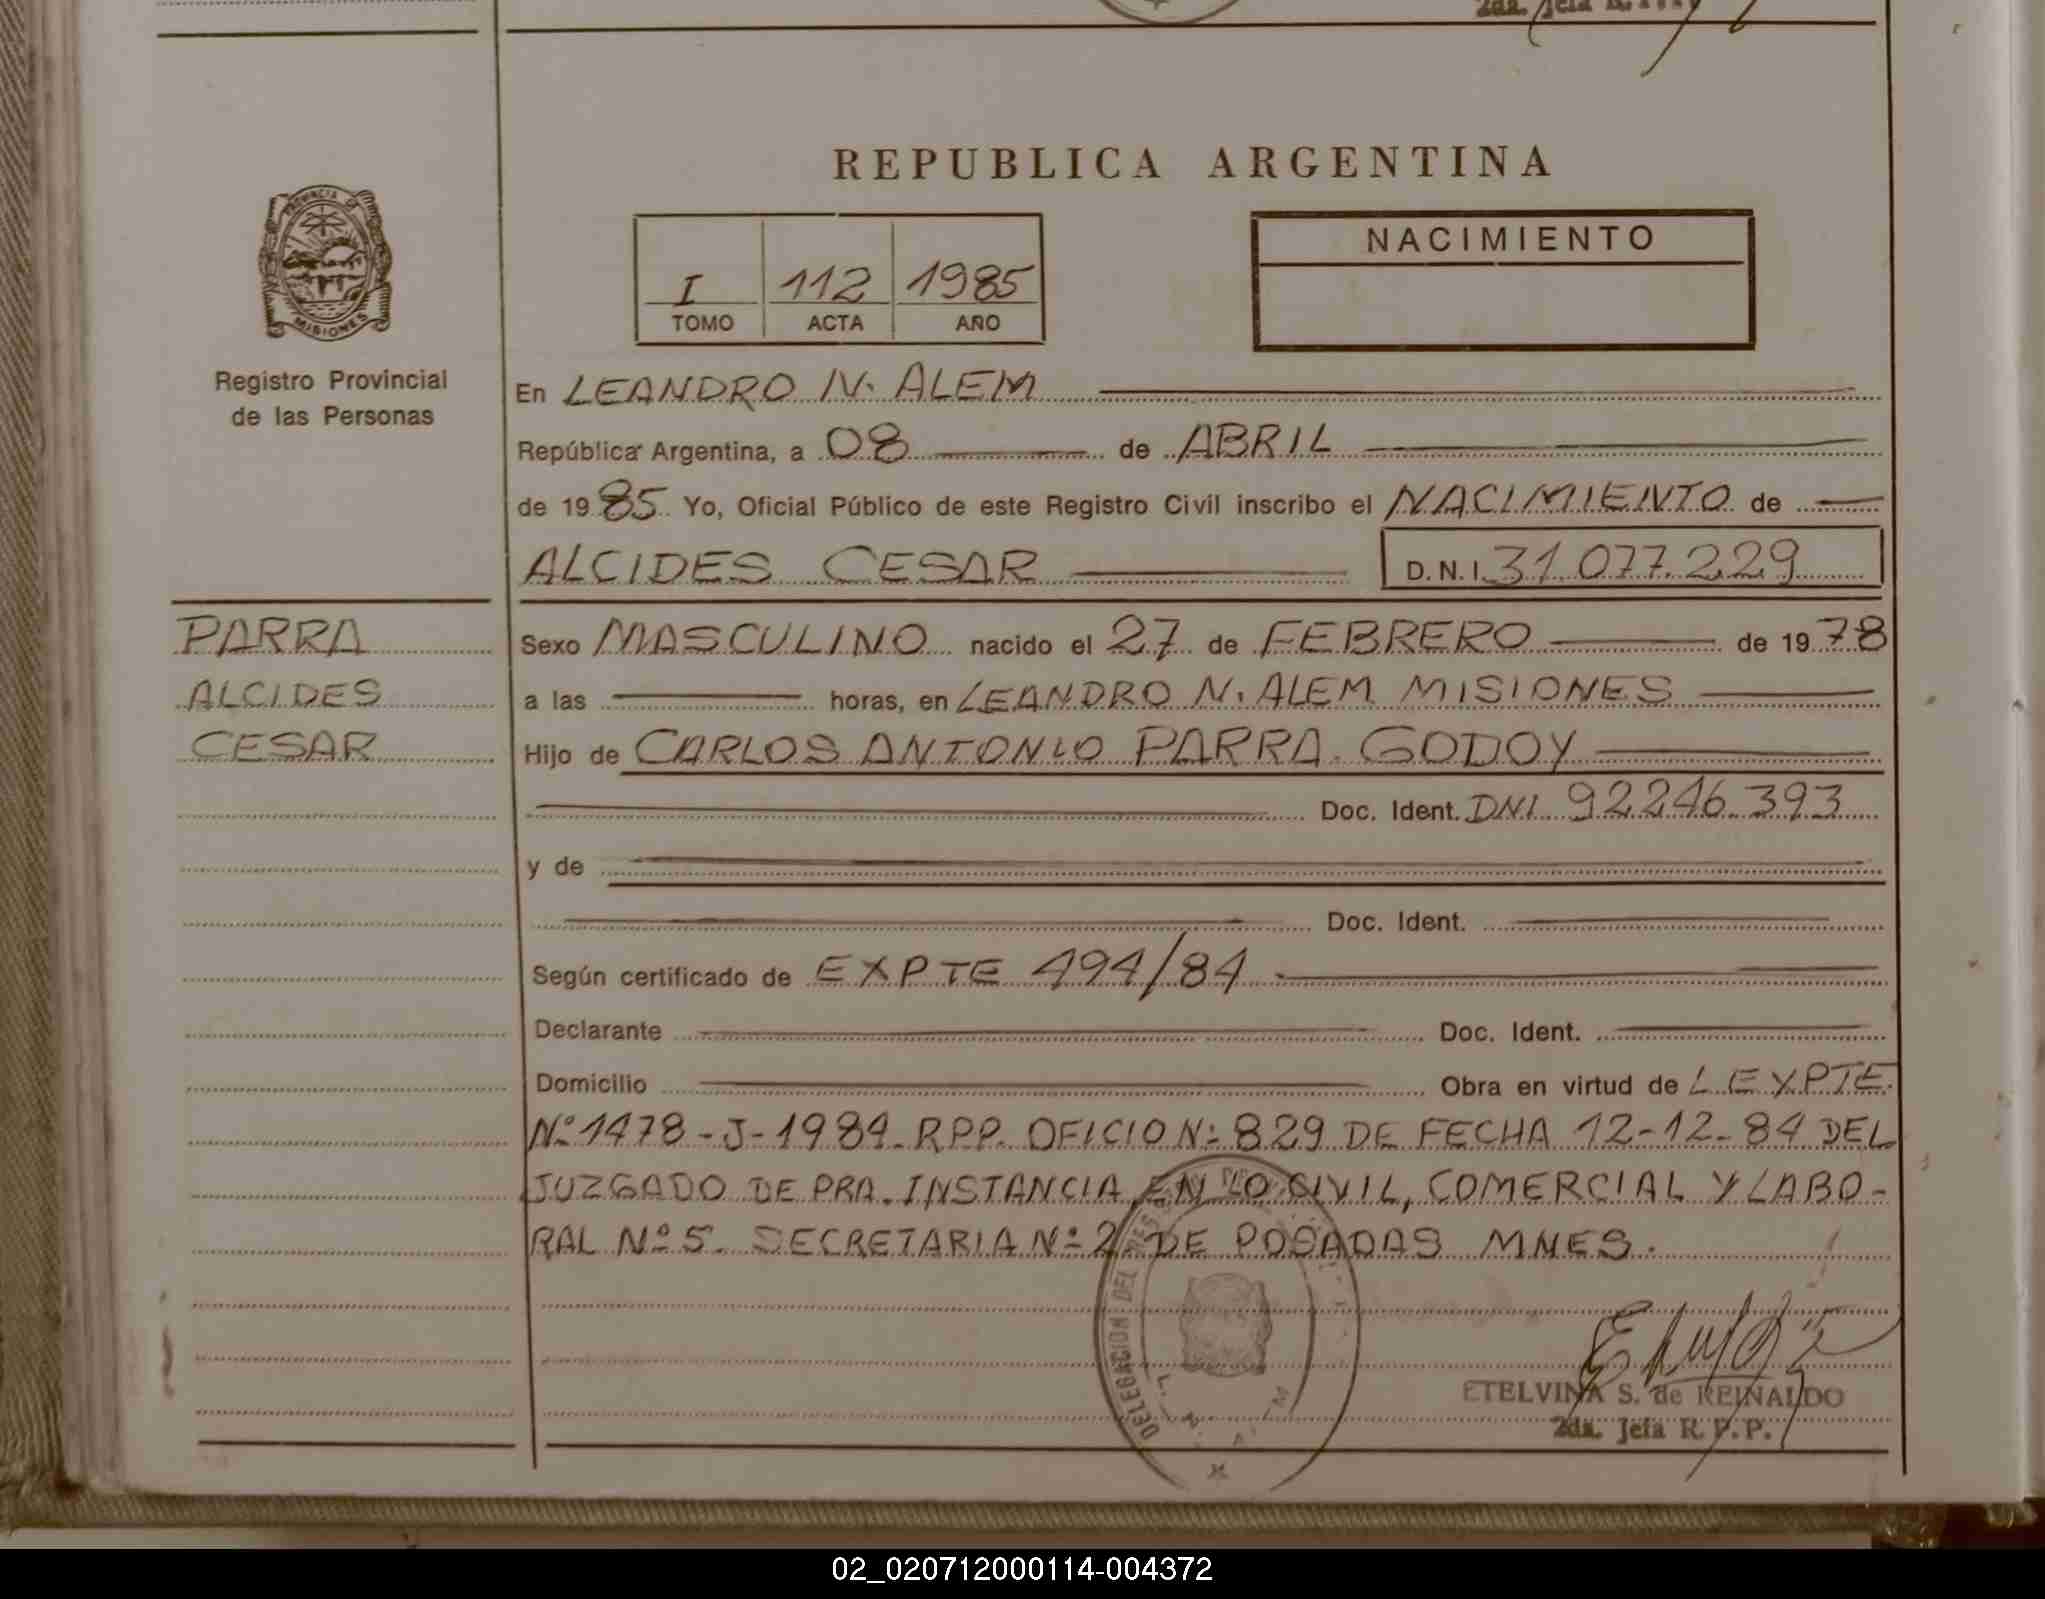 2da. Jefa R.P.P.
REPUBLICA ARGENTINA
PROVINCIA DE
MISIONES
Registro Provincial
de las Personas
I 112 1985
TOMO ACTA AÑO
NACIMIENTO
En LEANDRO N. ALEM
República Argentina, a 08 de ABRIL
de 1985 Yo, Oficial Público de este Registro Civil inscribo el NACIMIENTO de
ALCIDES CESAR D.N.I. 31.077.229
PARRA
ALCIDES
CESAR
Sexo MASCULINO nacido el 27 de FEBRERO de 1978
a las horas, en LEANDRO N. ALEM MISIONES
Hijo de CARLOS ANTONIO PARRA GODOY
Doc. Ident. DNI 92246.393
y de
Doc. Ident.
Según certificado de EXPTE 494/84
Declarante Doc. Ident.
Domicilio Obra en virtud de L EXPTE.
Nº 1478-J-1984-RPP. OFICIO Nº 829 DE FECHA 12-12-84 DEL
JUZGADO DE PRA. INSTANCIA EN LO CIVIL, COMERCIAL Y LABO-
RAL Nº 5. SECRETARIA Nº 2 DE POSADAS MNES.
DELEGACION DEL
L. N. ALEM
ETELVINA S. de REINALDO
2da. Jefa R.P.P.
02_020712000114-004372